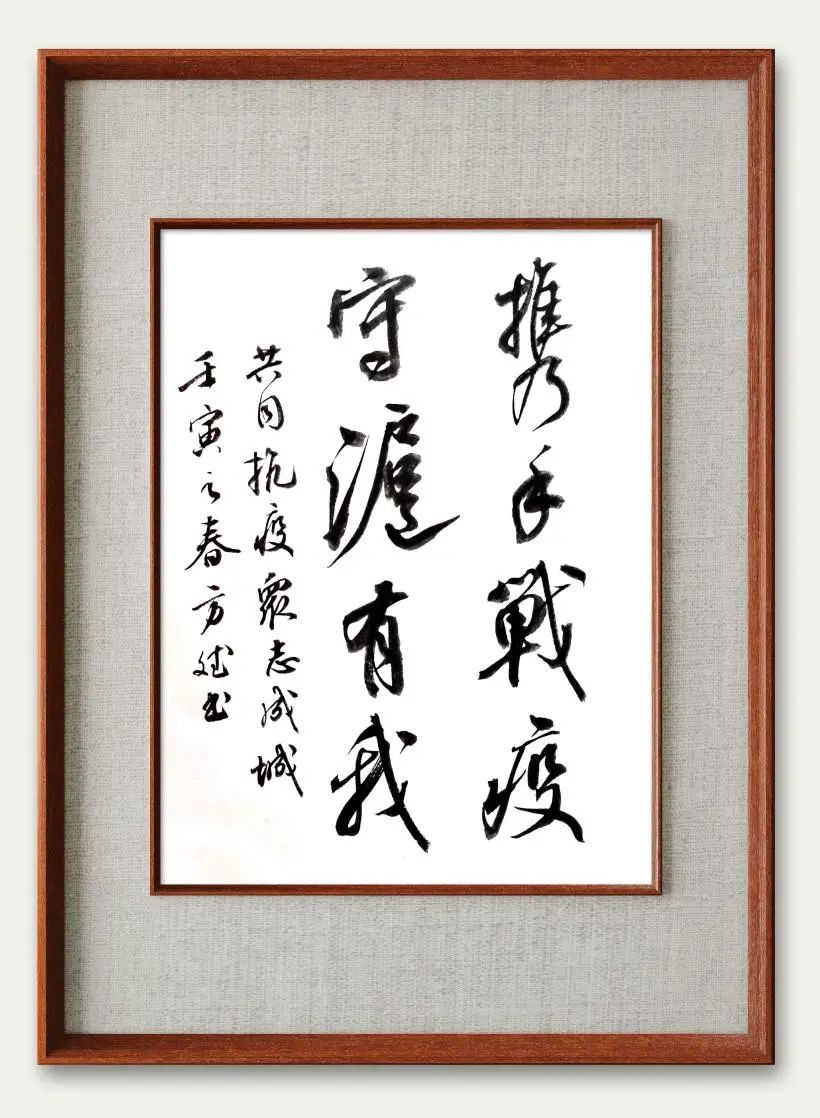 携手戰疫
守滬有我
共同抗疫眾志成城
壬寅之春方斌书